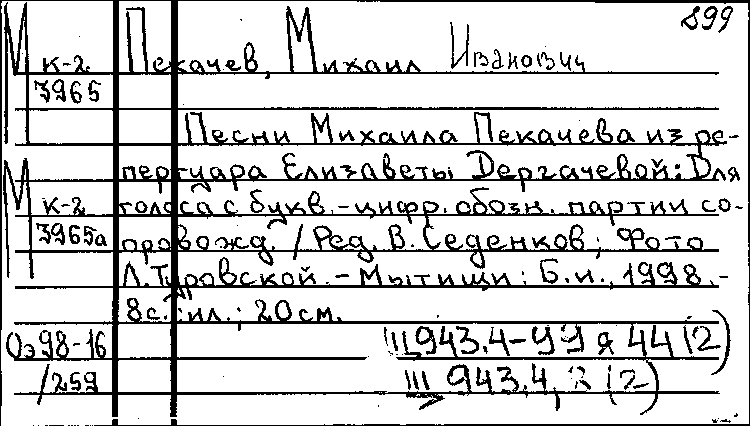 899
М к-2 3965
Пекачев, Михаил Иванович
Песни Михаила Пекачева из ре-
пертуара Елизаветы Дергачевой: Для
М к-2 3965а
голоса с букв.-цифр. обозн. партии со-
провожд. / Ред. В. Седенков; Фото
Л. Туровской. - Мытищи: Б.и., 1998. -
8с.: ил.; 20см.
Оэ98-16
/259
Щ943.4-99 я 44 (2)
Щ 943.4, 2 (2)